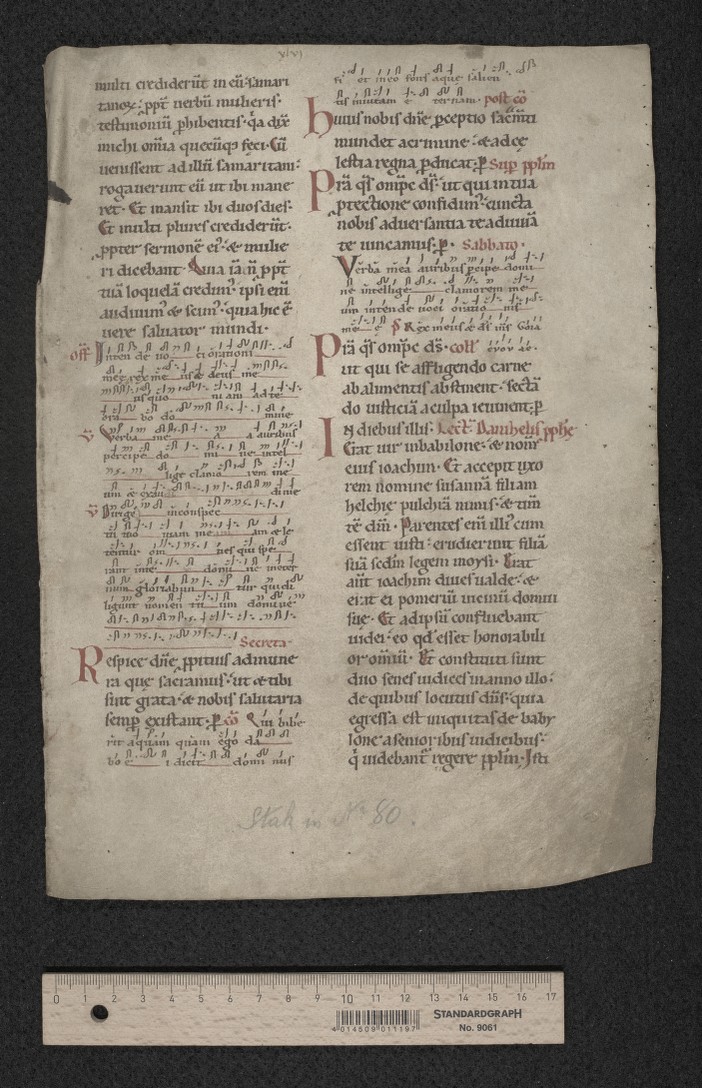 multi crediderūt in eū samari
tanoꝝ ꝓpt̄ uerbū mulieris·
testimoniū ꝑhibentis· q̇a dix̄
michi om̄ia quecūq; feci· Cū
uenissent ad illū samaritani
rogauerunt eū ut ibi mane
ret· Et mansit ibi duos dies·
Et multi plures crediderūt·
ꝓpter sermonē ei᷒· & mulie
ri dicebant· Quia iā ñ ꝓpt̄
tuā loquelā credim᷒· ipsi eni
audiuim᷒ & scim᷒· quia hic ē
uere saluator mundi·
off̄ Inten de uo ci orationi
meę rex me us & deus me
us quo ni am ad te
ora bo do mine
v̄ Verba me a auribus
percipe do mi ne intel
lige clamo rem me
um & exaudi di me
v̄ Dirige in conspec
tu tuo uiam me am & lę
tentur om nes qui spe
rant in te domi ne in eter
num gloriabun tur qui di
ligunt nomen tu um domi ne
Secreta
Respice dn̄e ꝓpitius ad mune
ra que sacramus· ut & tibi
sint grata· & nobis salutaria
semꝑ existant· ꝑ cō Qui bibe
rit aquam quam ego da
bo e i dicit domi nus
fi et in eo fons aquę salien
tis in uitam ę ternam· post cō
Huius nobis dn̄e ꝑceptio sacm̄ti
mundet a crimine· & ad cę
lestia regna ꝑducat· ꝑ Suꝑ pplm̄
Pr̄a q̄s om̄pc d̄s· ut qui in tua
ꝓtectione confidim᷒· cuncta
nobis aduersantia te adiuuā
te uincamus· ꝑ· Sabbato·
Verba mea auribus ꝑcipe domi
ne intellige clamorem me
um intende uoci orationis
me ę p̄ Rex meus & d̄s m̄s Glōia
Pr̄a q̄s om̄pc d̄s· coll̄ euouae·
ut qui se affligendo carne
ab alimentis abstinent· sectā
do iusticiā a culpa ieiunent· ꝑ
In diebus illis· Lect̄· Danihelis ꝓphę
Erat uir in babilone· & nom̄
eius ioachim· Et accepit uxo
rem nomine susannā filiam
helchię pulchrā nimis· & tim̄
tē dm̄· Parentes eni illi᷒ cum
essent iusti· erudierunt filiā
suā scdm̄ legem moysi· Erat
aūt ioachim diues ualde· &
erat ei pomeriū uicinū domui
suę· Et ad ipsū confluebant
iudei· eo qd̄ esset honorabili
or om̄iū· Et constituti sunt
duo senes iudices in anno illo·
de quibus locutus dn̄s· quia
egressa est iniquitas de baby
lone a senioribus iudicibus·
q̇ uidebant᷒ regere pplm̄· Isti
Stak in No 80.
0 1 2 3 4 5 6 7 8 9 10 11 12 13 14 15 16 17
4 014509 011197
STANDARDGRAPH
No. 9061